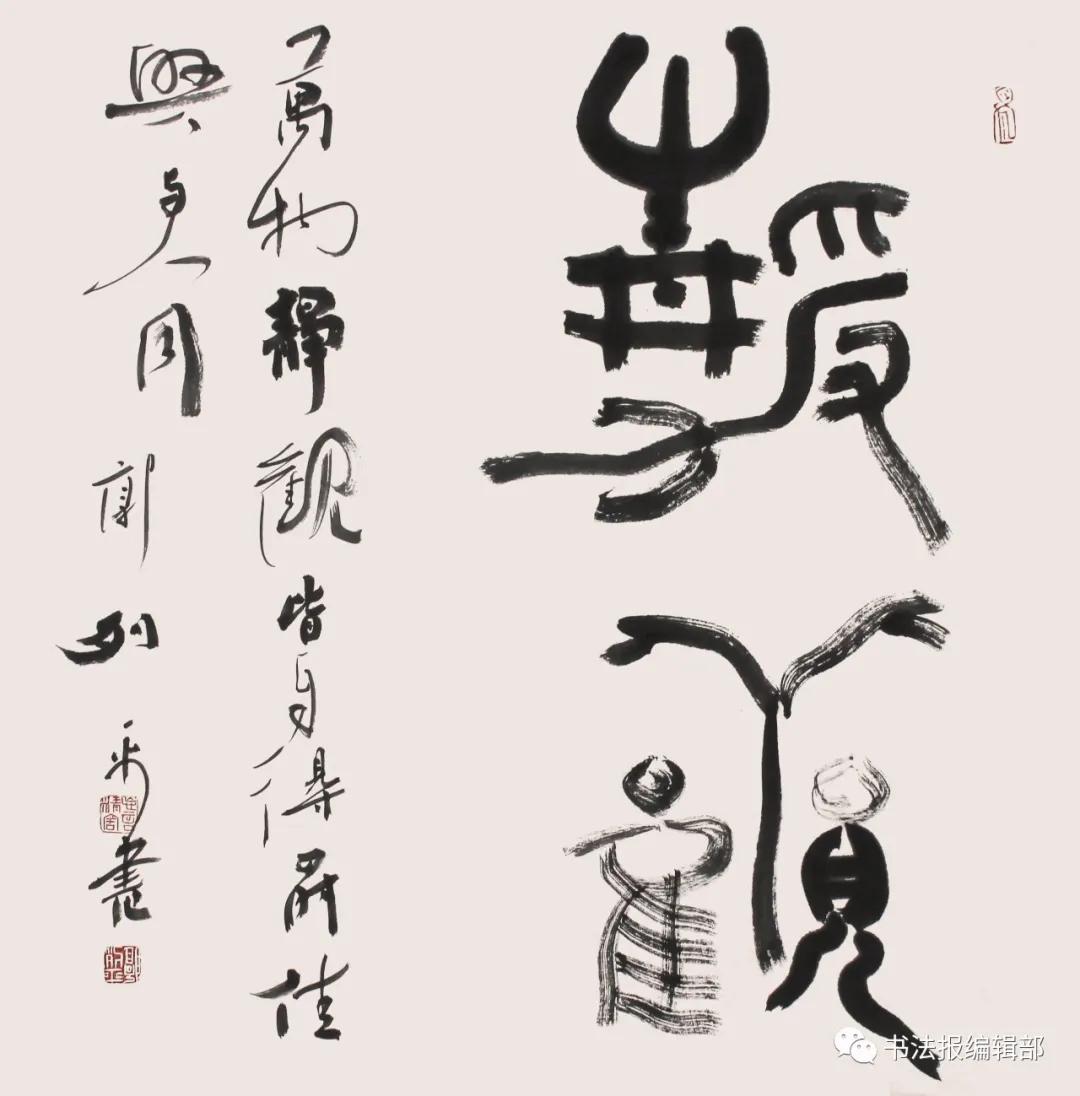 靜觀
萬物靜觀皆自得四時佳
興與人同 郭列平書
书法报编辑部